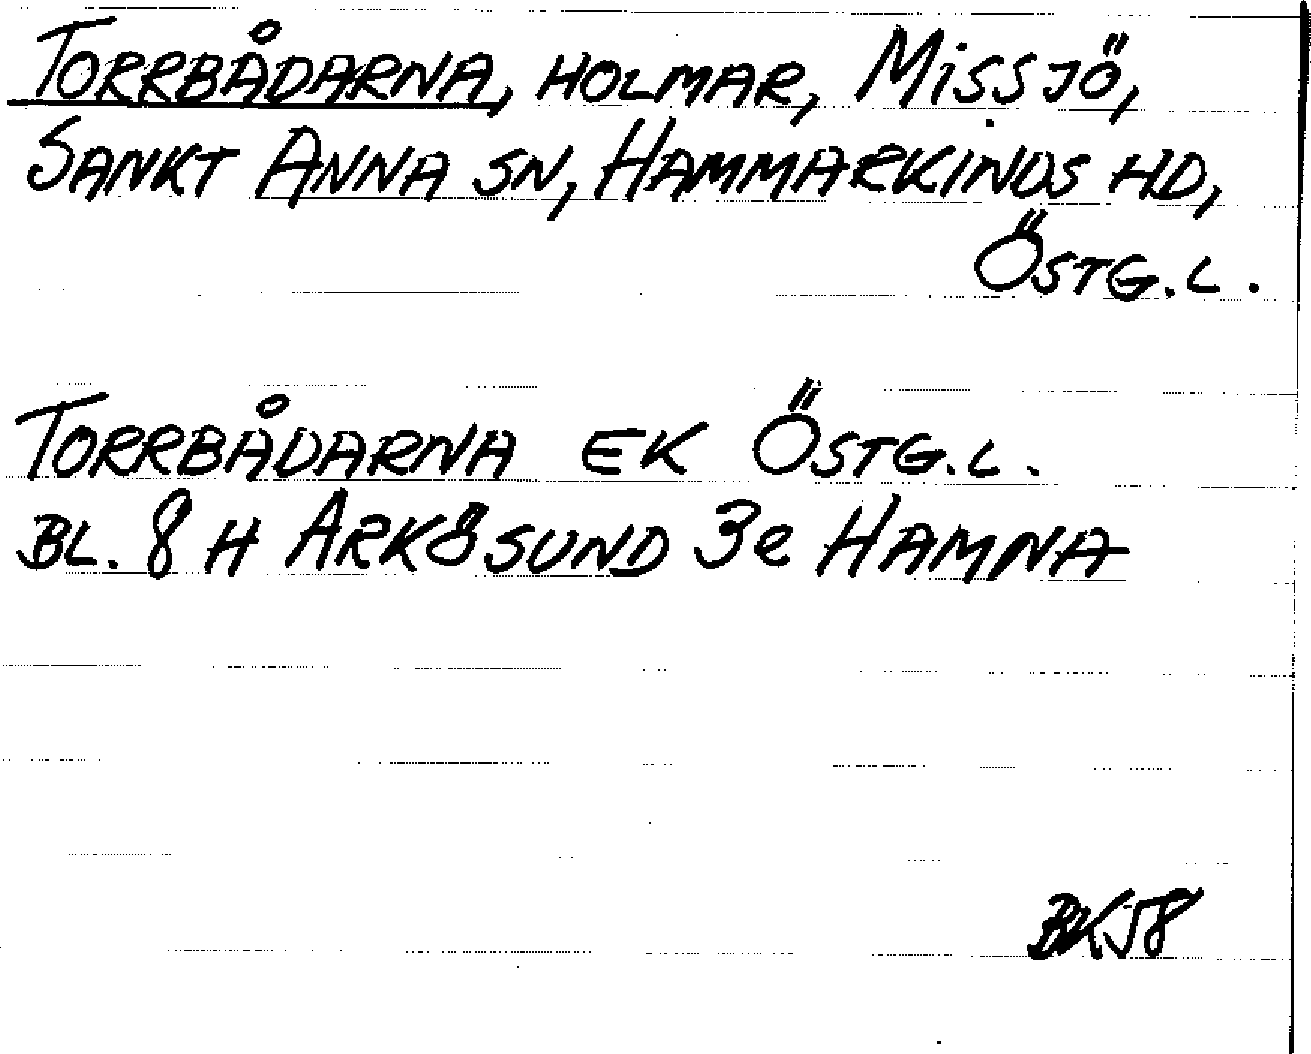 TORRBÅDARNA, HOLMAR, MISSJÖ,
SANKT ANNA SN, HAMMARKINDS HD,
ÖSTG.L.
TORRBÅDARNA EK ÖSTG.L.
BL. 8 H ARKÖSUND 3e HAMNA
BK58